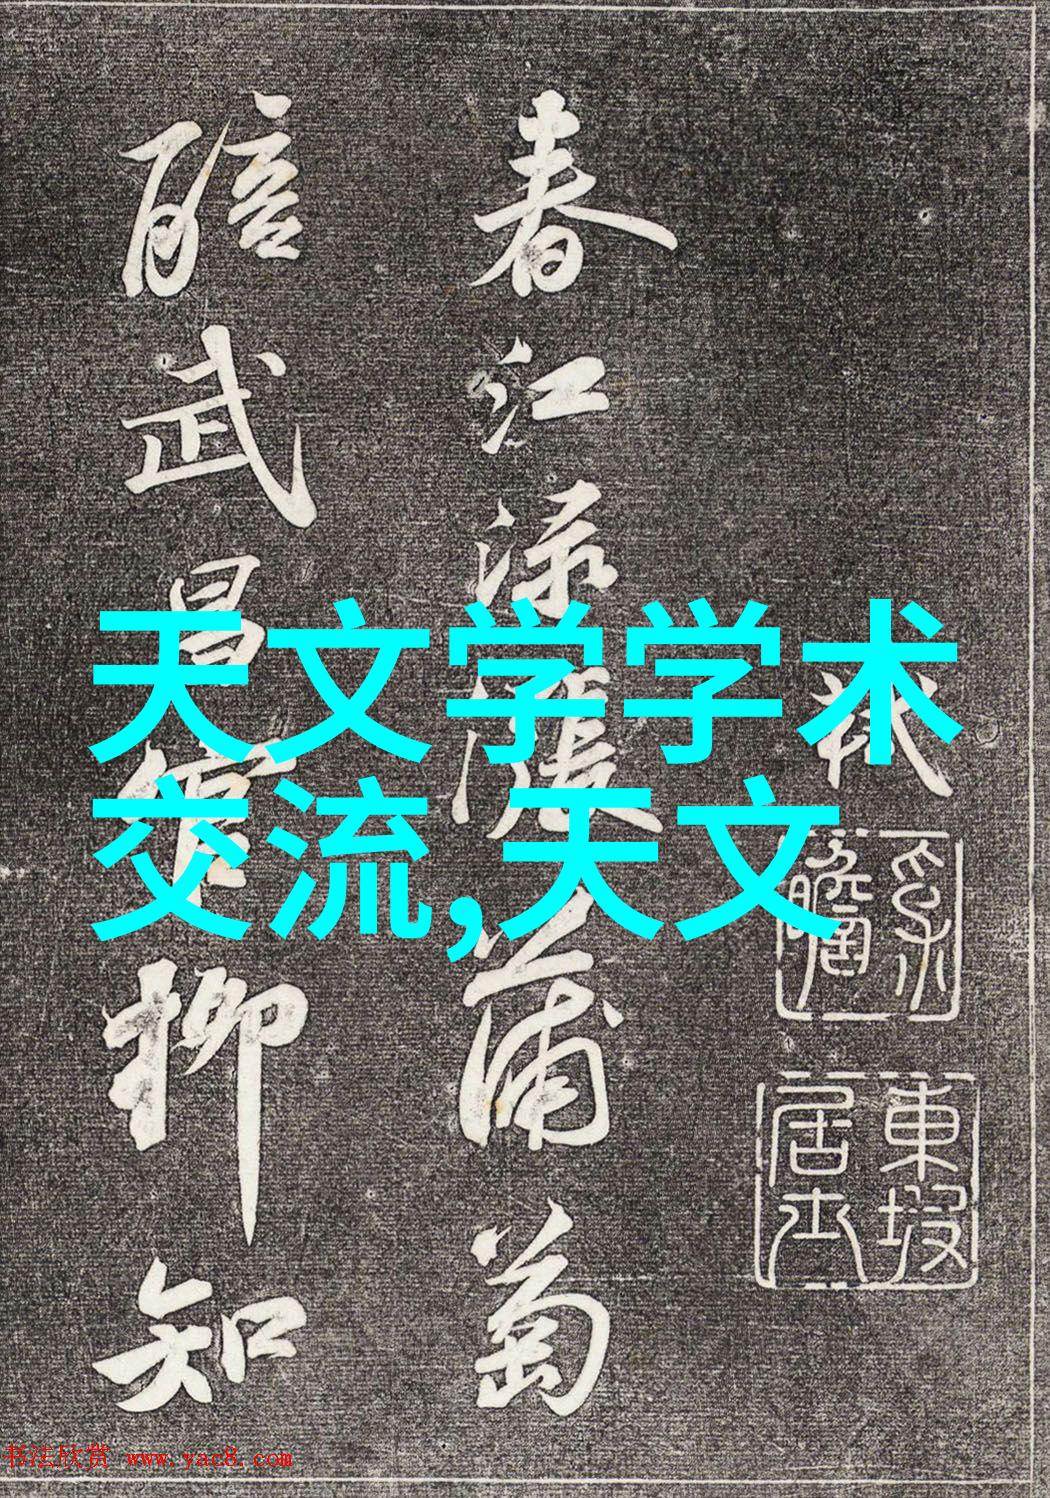 天文学学术
交流,天文
軾
東坡居士
春江渌漲蒲萄
醅武昌官柳知
书法欣赏 www.yac8.com